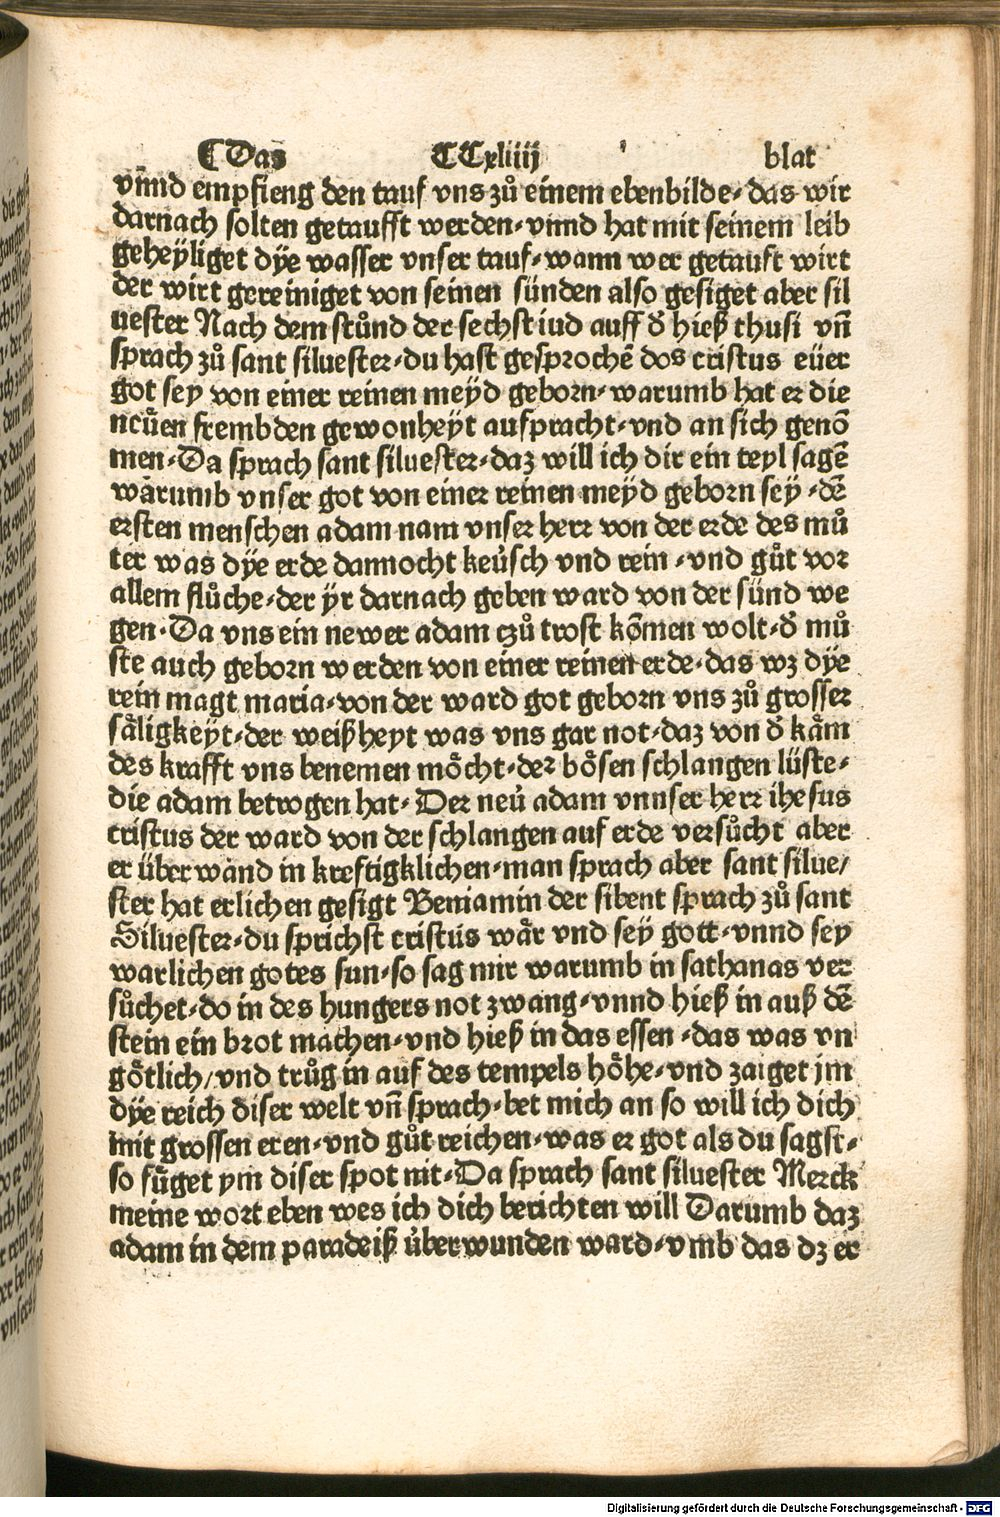 ¶Das CCxliiij blat
vnnd empfieng den tauf vns zů einem ebenbilde· das wir
darnach solten getaufft werden· vnnd hat mit seinem leib
geheyliget dÿe wasser vnser tauf· wann wer getauft wirt
der wirt gereiniget von seinen sünden also gesiget aber sil
uester Nach dem stůnd der sechst iud auff d̕ hieß thusi vñ
sprach zů sant siluester· du hast gesprochẽ dos cristus eüer
got sey von einer reinen meyd geborn· warumb hat er die
neüen frembden gewonheyt aufpracht· vnd an sich genō
men· Da sprach sant siluester· daz will ich dir ein teyl sagẽ
warumb vnser got von einer reinen meyd geborn sey· dẽ
ersten menschen adam nam vnser herr von der erde des mů
ter was dÿe erde dannocht keüsch vnd rein· vnd gůt vor
allem flůche· der ÿr darnach geben ward von der sünd we
gen· Da vns ein newer adam czů trost kōmen wolt· d̕ mů
ste auch geborn werden von einer reinen erde· das wz dÿe
rein magt maria· von der ward got geborn vns zů grosser
säligkeyt· der weißheyt was vns gar not· daz von d̕ käm
des krafft vns benemen möcht· der bösen schlangen lüste·
die adam betrogen hat· Der neü adam vnnser herr ihesus
cristus der ward von der schlangen auf erde versůcht aber
er überwand in kreftigklichen· man sprach aber sant silue/
ster hat erlichen gesigt Beniamin der sibent sprach zů sant
Siluester· du sprichst cristus wär vnd sey gott· vnnd sey
warlichen gotes sun· so sag mir warumb in sathanas ver
sůchet· do in des hungers not zwang· vnnd hieß in auß dẽ
stein ein brot machen· vnd hieß in das essen· das was vn
götlich/ vnd trůg in auf des tempels höhe· vnd zaiget jm
dÿe reich diser welt vñ sprach· bet mich an so will ich dich
mit grossen eren· vnd gůt reichen· was er got als du sagst·
so füget ym diser spot nit· Da sprach sant siluester Merck
meine wort eben wes ich dich berichten will Darumb daz
adam in dem paradeiß überwunden ward· vmb das dz er
Digitalisierung gefördert durch die Deutsche Forschungsgemeinschaft - DFG